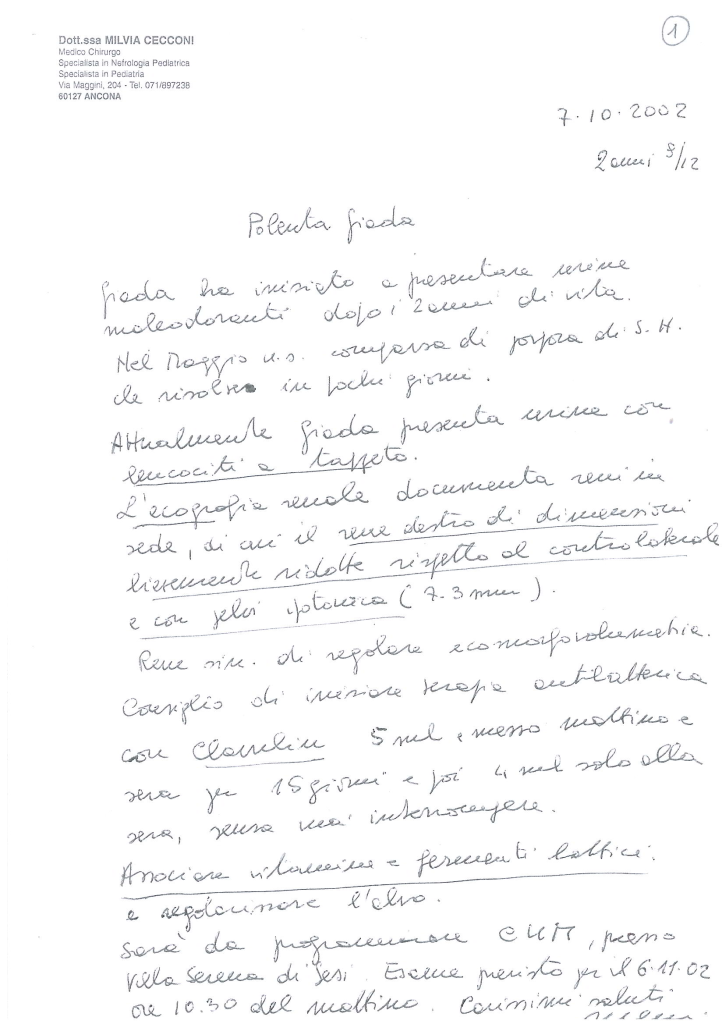 1
Dott.ssa MILVIA CECCONI
Medico Chirurgo
Specialista in Nefrologia Pediatrica
Specialista in Pediatria
Via Maggini, 204 - Tel. 071/897238
60127 ANCONA
7.10.2002
2 anni 9/12
Polenta Giada
Giada ha iniziato a presentare urine
maleodoranti dopo i 2 anni di vita.
Nel Maggio u.s. comparsa di porpora di S. H.
che risolve in pochi giorni.
Attualmente Giada presenta urine con
leucociti a tappeto.
L'ecografia renale documenta reni in
sede, di cui il rene destro di dimensioni
lievemente ridotte rispetto al controlaterale
e con pelvi ipotonica (7.3 mm).
Rene sin. di regolare ecomorfovolumetria.
Consiglio di iniziare terapia antibatterica
con Clavulin 5 ml e mezzo mattino e
sera per 15 giorni e poi 4 ml solo alla
sera, senza mai interrompere.
Associare vitamine e fermenti lattici.
e regolarizzare l'alvo.
Sarà da programmare CUM, presso
Villa Serena di Jesi. Esame previsto per il 6.11.02
ore 10.30 del mattino. Carissimi saluti